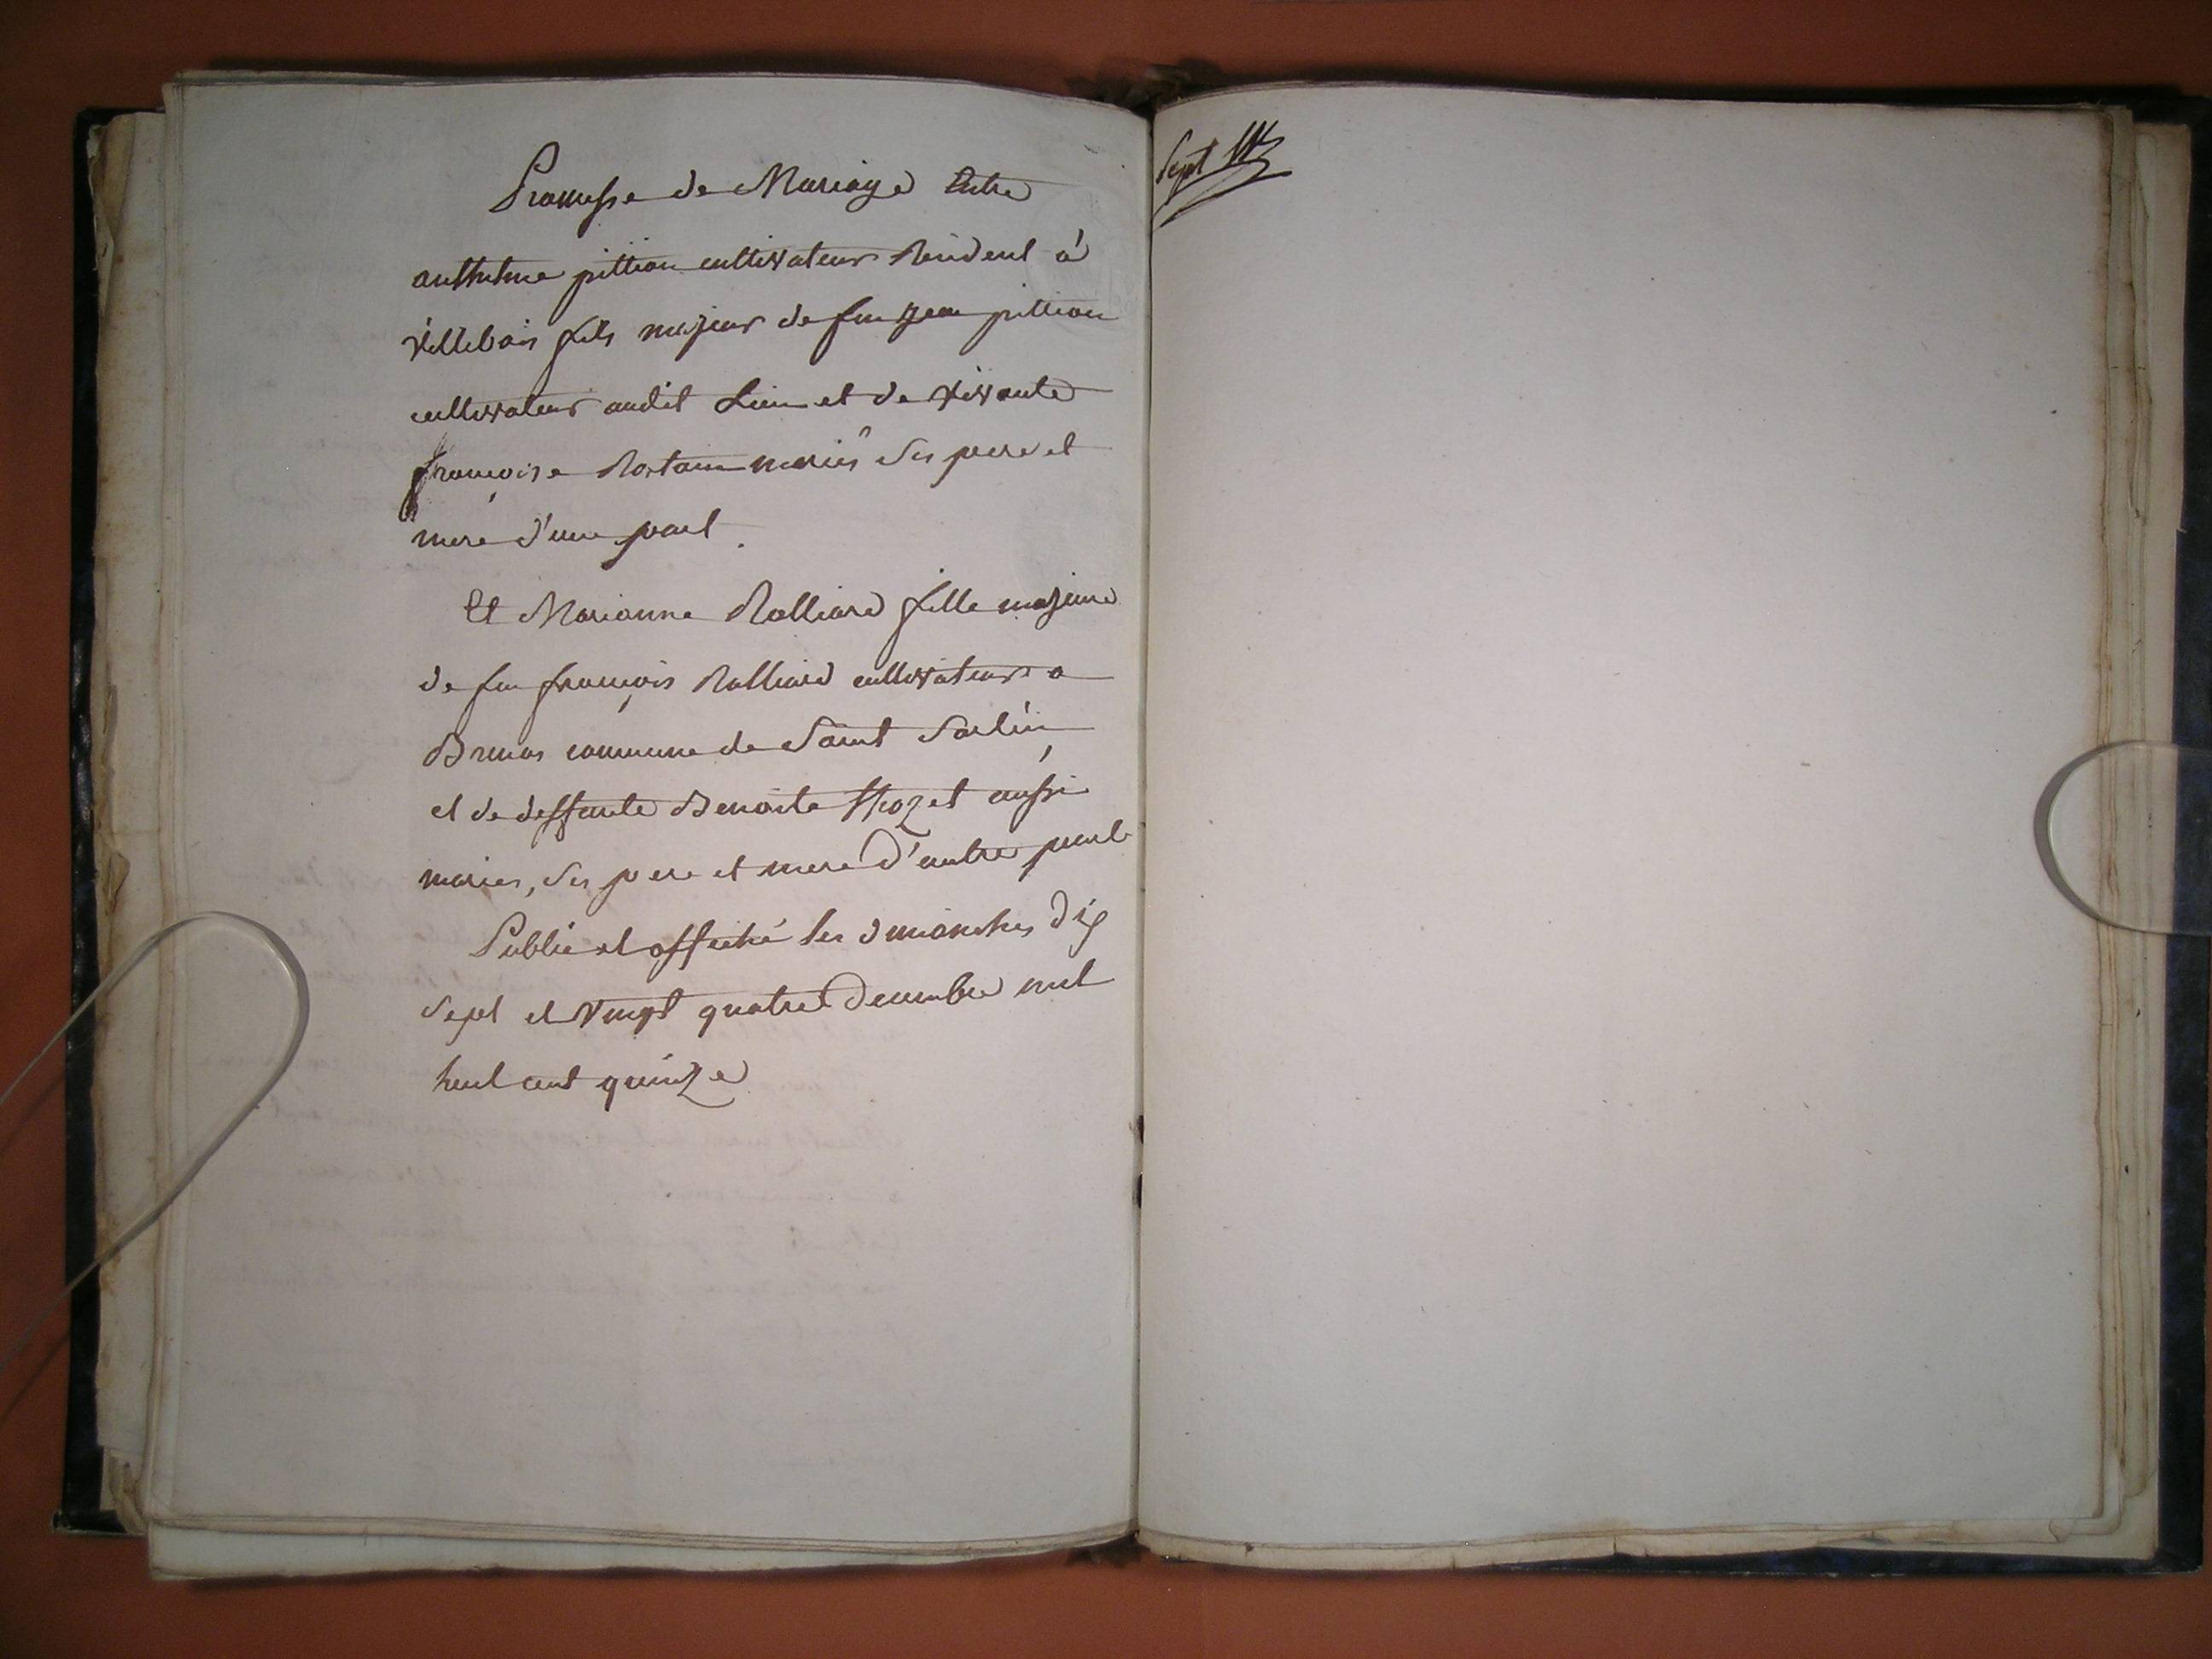 Promesse de Mariage Entre
anthelme pittion cultivateur Résident à
Villebois fils majeur de feu jean pittion
cultivateur audit Lieu et de vivante
françoise Rostain mariés ses pere et
mere d'une part.
Et Marianne Ralliard fille majeure
de feu françois Ralliard cultivateur a
commune de Saint Sorlin
et de deffunte Benoite Trozet aussi
mariés, ses pere et mere d'autre part
Publié et affiché les dimanches dix
sept et vingt quatre Decembre mil
huit cent quinze
Sept